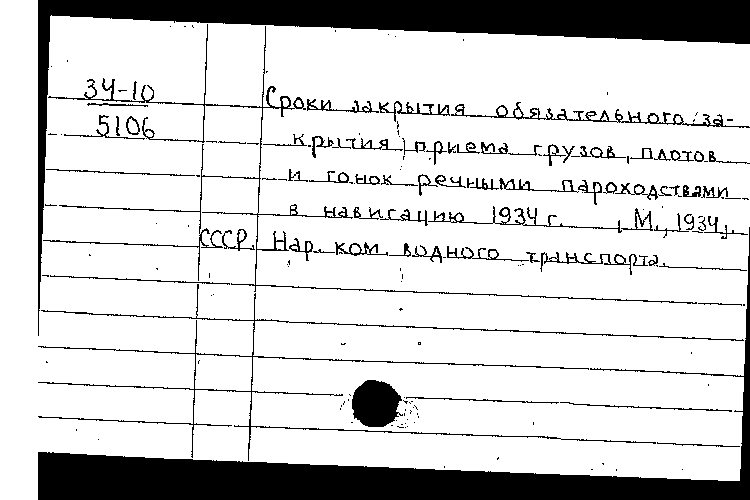 34-10
5106
Сроки закрытия обязательного /за-
крытия/ приема грузов, плотов
и гонок речными пароходствами
в навигацию 1934 г. [М., 1934].
СССР. Нар. ком. водного транспорта.